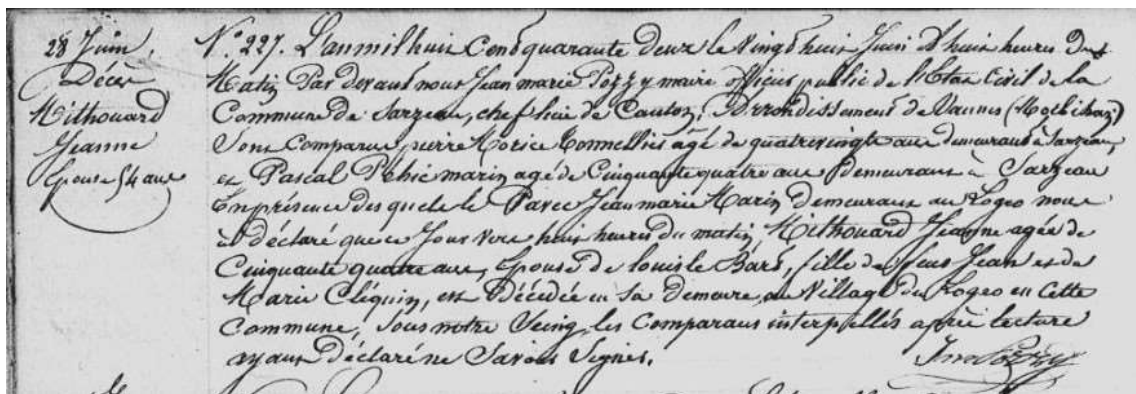 28 Juin,
Décès
Mithouard
Jeanne
Epouse 54 ans
N.° 227. L'an mil huit Cent quarante deux le vingt huit Juin à huit heures du
Matin Par devant nous Jean marie Pozzy maire officier public de l'Etat Civil de la
Commune de Sarzeau, chef lieu de Canton, Arrondissement de Vannes (Morbihan)
Sont Comparus, pierre Morice agé de quatrevingts ans demeurant à Sarzeau,
et Pascal Péhic marin agé de Cinquante quatre ans Demeurant à Sarzeau
En présence desquels le Jean marie Marin Demeurant au Logeo nous
a déclaré que ce Jour vers huit heures du matin, Mithouard Jeanne agée de
Cinquante quatre ans, Epouse de louis le Bars, fille de feus Jean et de
Marie Cléquin, est Décédée en Sa Demeure, au Village du Logeo en Cette
Commune, Sous notre Seing, les Comparans interpellés après lecture
ayant Déclaré ne Savoir Signer.
Jm Pozzy